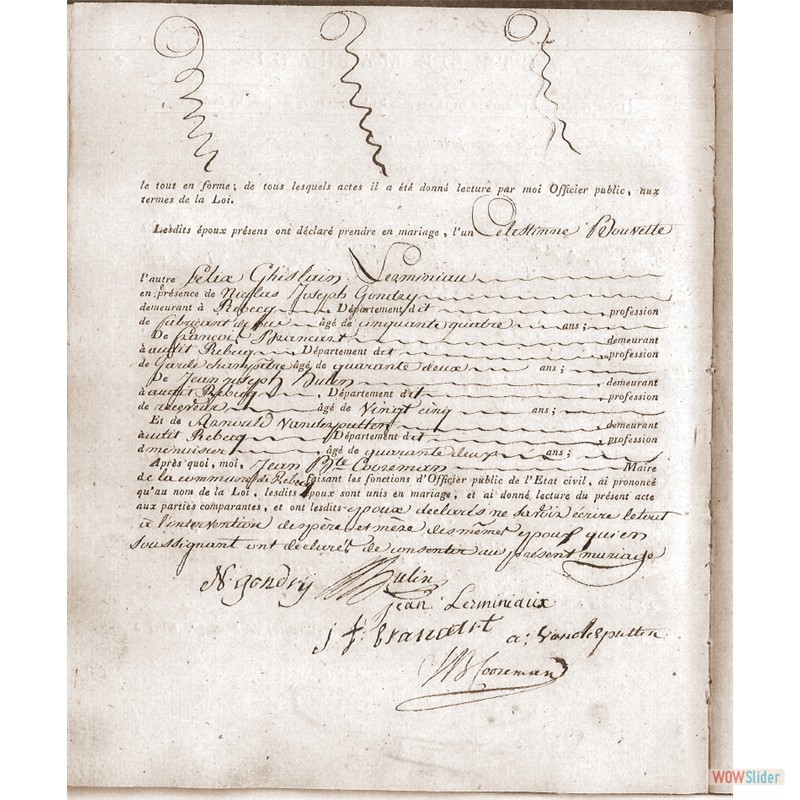 le tout en forme; de tous lesquels actes il a été donné lecture par moi Officier public, aux
termes de la Loi.
Lesdits époux présens ont déclaré prendre en mariage, l'un Celestinne Bouvette
l'autre Felix Ghislain Lerminiau
en présence de Nicolas Joseph Gondry
demeurant à Rebecq Département dit profession
de fabricant de bas âgé de cinquante quatre ans;
De françois demeurant
à audit Rebecq Département dit profession
de Garde champêtre âgé de quarante deux ans;
De Jean joseph Hulin demeurant
à audit Rebecq Département dit profession
de receveur âgé de Vingt cinq ans;
Et de Arnould Vanderputten demeurant
à udit Rebecq Département dit profession
d menuisier âgé de quarante deux ans;
Après quoi, moi, Jean Bte Cooreman Maire
de la commune de Rebecq faisant les fonctions d'Officier public de l'Etat civil, ai prononcé
qu'au nom de la Loi, lesdits époux sont unis en mariage, et ai donné lecture du présent acte
aux parties comparantes, et ont lesdits epoux declarés ne savoir écrire le tout
à l'intervention des père et mère des mêmes epoux qui en
soussignant ont déclarés de consentir au présent mariage
N. gondry Hulin
jean Lerminiaux
j f: a: Vanderputten
JB Cooreman
WOWSlider